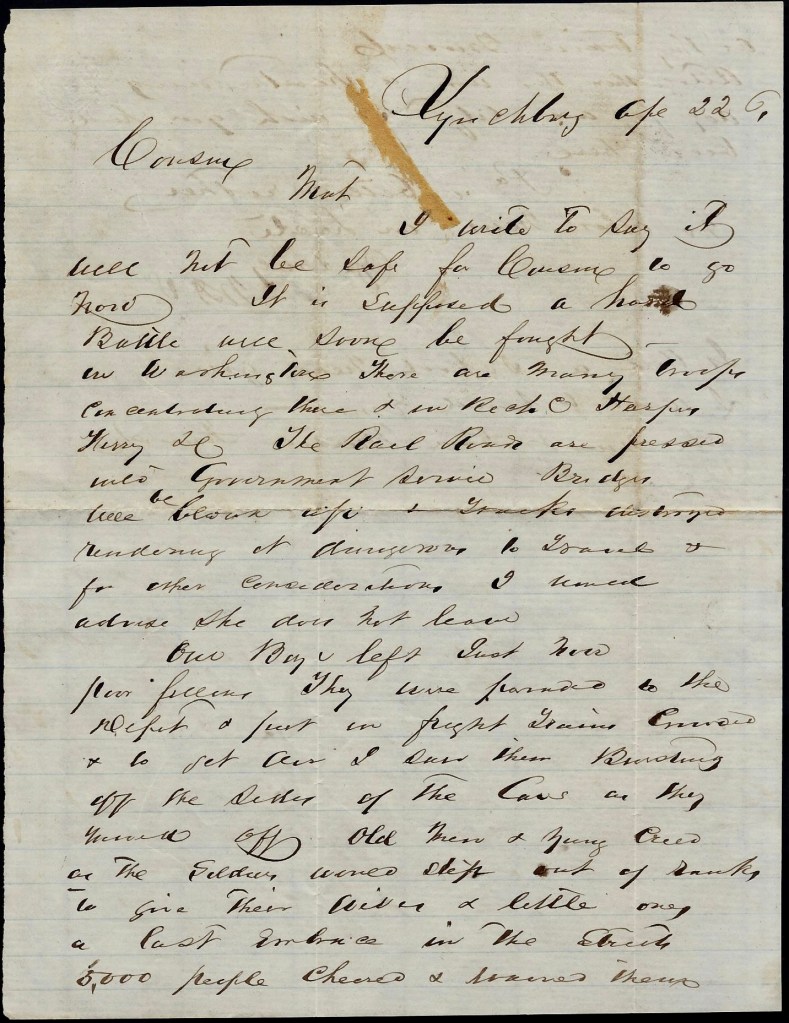 Lynchburg Ape 22 6,
Cousin
Mat
I write to say it
will not be safe for Cousin to go
now It is supposed a hard
Battle will soon be fought
in Washington There are many troops
concentrating there & in Harpers
Ferry &C The Rail Roads are pressed
into Government service Bridges
will be blown up & Tracks destroyed
rendering it dangerous to Travel &
for other considerations I would
advise she does not leave
Our Boys left Just now
poor fellows They were paraded to the
Depot & put in fright Trains Crowded
& to get air I saw them Bursting
off the sides of the Cars as they
moved off Old Men & Yung Cried
as the Soldiers would step out of ranks
to give Their Wives & little ones
a last Embrace in the Streets
5,000 people Cheered & waived them